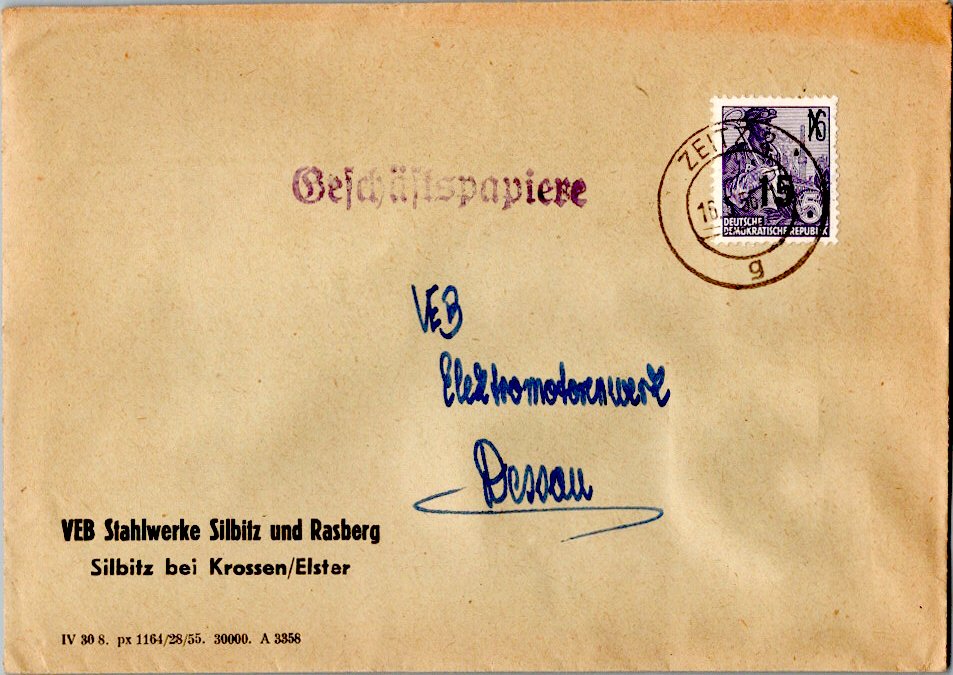 Geschäftspapiere
ZEITZ
16
15
DEUTSCHE
DEMOKRATISCHE REPUBLIK
g
VEB
Elektromotorenwerk
Dessau
VEB Stahlwerke Silbitz und Rasberg
Silbitz bei Krossen/Elster
IV 30 8. px 1164/28/55. 30000. A 3358